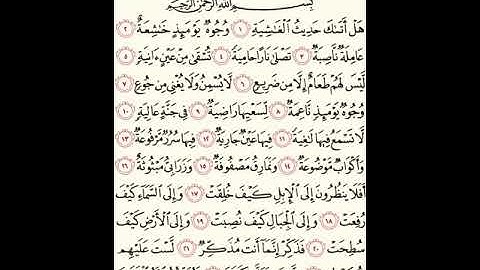 بِسْمِ اللَّهِ الرَّحْمَٰنِ الرَّحِيمِ
هَلْ أَتَىٰكَ حَدِيثُ الْغَٰشِيَةِ ١ وُجُوهٌ يَوْمَئِذٍ خَٰشِعَةٌ ٢
عَامِلَةٌ نَّاصِبَةٌ ٣ تَصْلَىٰ نَارًا حَامِيَةً ٤ تُسْقَىٰ مِنْ عَيْنٍ ءَانِيَةٍ ٥
لَّيْسَ لَهُمْ طَعَامٌ إِلَّا مِن ضَرِيعٍ ٦ لَّا يُسْمِنُ وَلَا يُغْنِي مِن جُوعٍ ٧
وُجُوهٌ يَوْمَئِذٍ نَّاعِمَةٌ ٨ لِّسَعْيِهَا رَاضِيَةٌ ٩ فِي جَنَّةٍ عَالِيَةٍ ١٠
لَّا تَسْمَعُ فِيهَا لَٰغِيَةً ١١ فِيهَا عَيْنٌ جَارِيَةٌ ١٢ فِيهَا سُرُرٌ مَّرْفُوعَةٌ ١٣
وَأَكْوَابٌ مَّوْضُوعَةٌ ١٤ وَنَمَارِقُ مَصْفُوفَةٌ ١٥ وَزَرَابِيُّ مَبْثُوثَةٌ ١٦
أَفَلَا يَنظُرُونَ إِلَى الْإِبِلِ كَيْفَ خُلِقَتْ ١٧ وَإِلَى السَّمَاءِ كَيْفَ
رُفِعَتْ ١٨ وَإِلَى الْجِبَالِ كَيْفَ نُصِبَتْ ١٩ وَإِلَى الْأَرْضِ كَيْفَ
سُطِحَتْ ٢٠ فَذَكِّرْ إِنَّمَا أَنتَ مُذَكِّرٌ ٢١ لَّسْتَ عَلَيْهِم